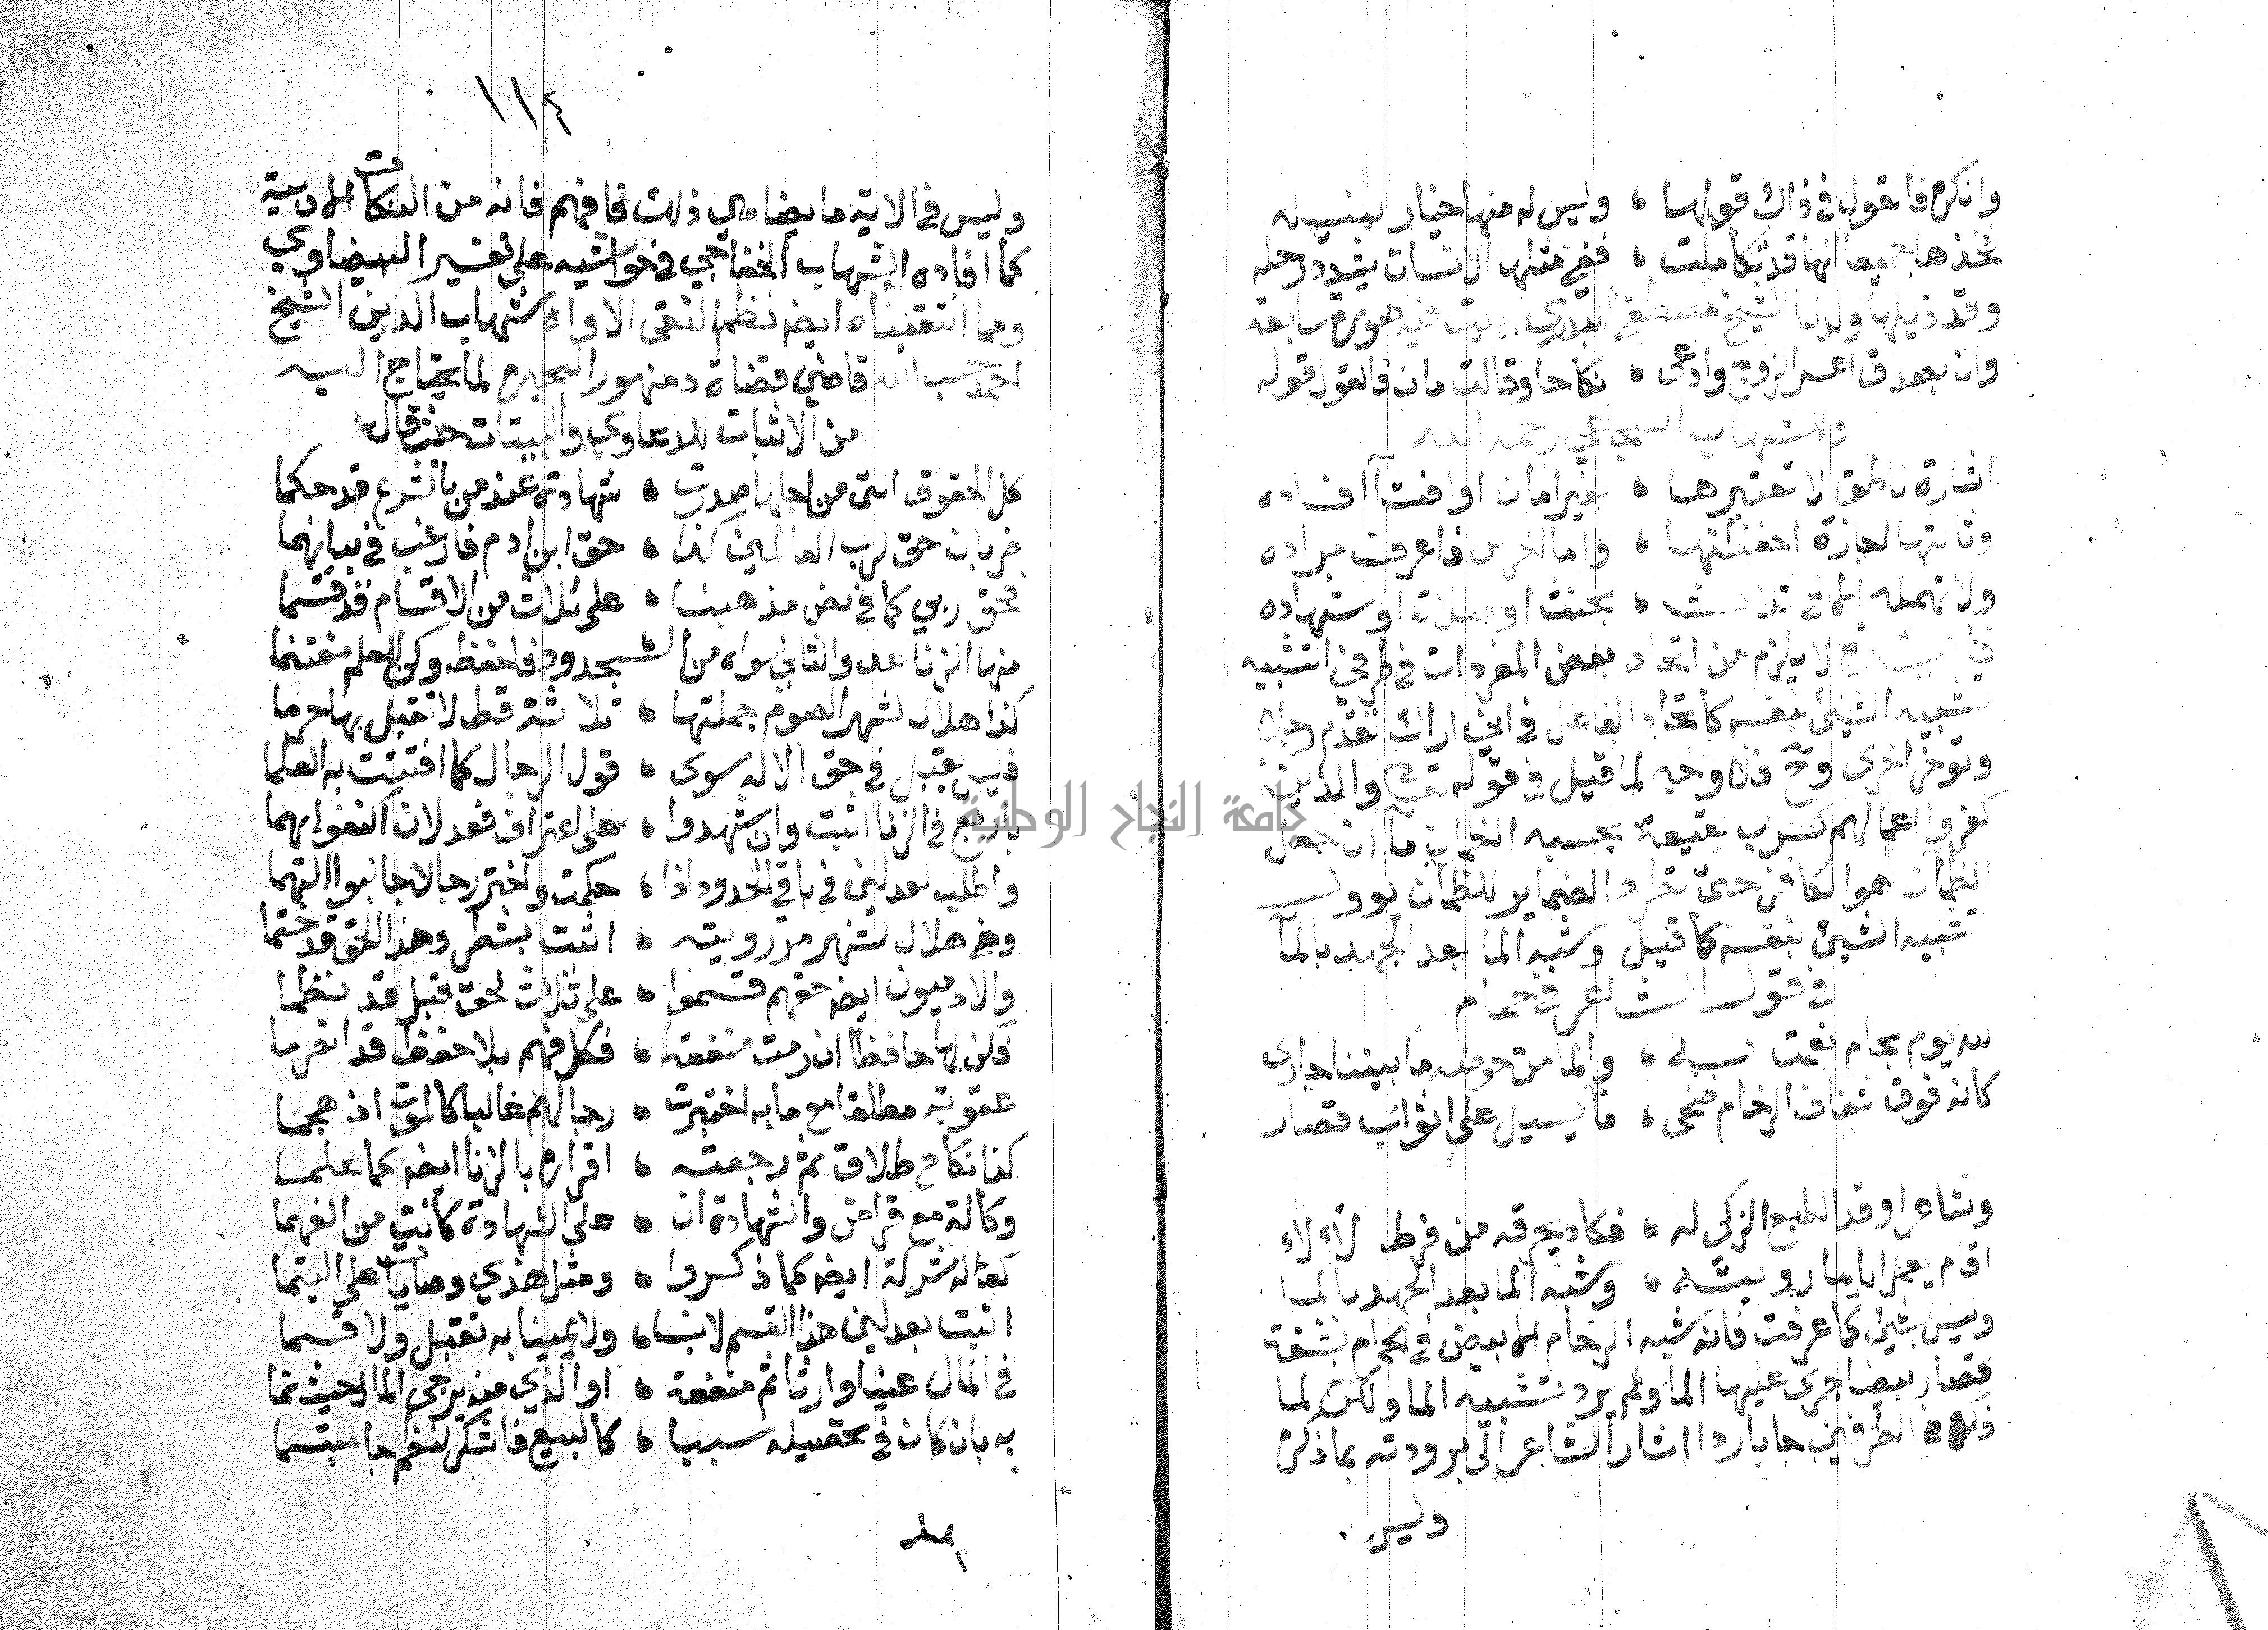 وانكره فالقول في ذاك قولها ؛ وليس له منها خيار ينيله
فخذها جميعا انها قد تكاملت ؛ ففي مثلها الانسان يشدد رحله
وقد ذيلها ولدنا الشيخ مصطفى البدري ببيت فيه صورة سابعة
وان بصداق اعسر الزوج وادعى ؛ نكاحا وقالت مان فالقول قوله
وللشهاب السجاعي رحمه الله
اشارة ناطق لا تعتبرها ؛ بغير امان او افتا افاده
وثالثها اجازة احفظنها ؛ واما الاخرس فاعرف مراده
ولا تهمله الا في ثلاث ؛ بحنث او صلاة او شهاده
لا يلزم من اتحاد بعض المفردات في طرفي التشبيه
تشبيه الشيئ بنفسه كاتحاد الفاعل في اني اراك تقدم رجلا
وتوخر اخرى وح فلا وجه لما قيل في قوله تعالى والذين
كفروا اعمالهم كسراب بقيعة يحسبه الظمان مآ ان جعل
الظمان هو الكافر حتى تعاد الضماير للظمان يوول
تشبيه الشيئ بنفسه كما قيل وشبه الما بعد الجهد بالمآ
في قول الشاعر في حمام
لله يوم بحمام نعمت به ؛ والما من حوضه ما بيننا جاري
كانه فوق شفاف الرخام ضحى ؛ ما يسيل على اثواب قصار
وشاعر اوقد الطبع الزكي له ؛ فكاد يحرقه من فرط لآلاء
اقام يعمل اياما رويته ؛ وشبه الما بعد الجهد بالما
وليس بشيئ كما عرفت فانه شبه الرخام الابيض في الحمام بشقة
قصار بيضا جرى عليها الما ولم يرد تشبيه الما ولكن لما
ذكره في الطرفين جا باردا اشار الشاعر الى برودته بما ذكر
وليس
١١٤
وليس في الاية ما يضاهي ذلك فافهم فانه من النكات الادبية
كما افاده الشهاب الخفاجي في حواشيه على تفسير البيضاوي
ومما انتقيناه ايضا نظم التقي الاواه شهاب الدين الشيخ
احمد حسب الله قاضي قضاة دمنهور البحيرة لما يحتاج اليه
من الاثبات للدعاوي والبينات حيث قال
كل الحقوق التي من اجلها صدرت ؛ شهادة عند من بالشرع قد حكما
ضربان حق لرب العالمين كذا ؛ حق ابن ادم فارغب في بيانهما
فحق ربي كما في نص مذهبنا ؛ على ثلاث من الاقسام قد قسما
منها الزنا عد والثاني سواه من الـ ؛ ـحدود فاحفظ وكن للعلم مغتنما
كذا هلال لشهر الصوم جملتها ؛ ثلاثة قط لا تقبل بها حرما
فليس يقبل في حق الاله سوى ؛ قول الرجال كما افتت به العلما
باربع في الزنا اثبت وان شهدوا ؛ على اعتراف فعدلان اكتفوا بهما
واطلب لعدلين في باقي الحدود اذا ؛ حكمت واختر رجالا جانبوا التهما
وفي هلال لشهر مر رويته ؛ اثبت بشطر وهذا الحق قد ختما
والادميون ايضا حقهم قسموا ؛ على ثلاث لحق قبل قد نظما
فكن لها حافظا ان رمت منفعة ؛ فكل فهم بلا حفظ قد انفرما
عقوبة مطلقا مع ما به اختبرت ؛ رجالهم غالبا كالموت اذ هجما
كذا نكاح طلاق ثم رجعته ؛ اقراره بالزنا ايضا كما علما
وكالة مع قراض والشهادة ان ؛ على الشهادة كانت من الفهما
كفالة شركة ايضا كما ذكروا ؛ ومثل هذي وصايات على اليتما
اثبت بعدلين هذا القسم لا بنسا ؛ ولا يمينا به تقبل ولا قسما
في المال عينا او ارثا ثم منفعة ؛ او الذي منه يرجى المال حيث نما
به بان كان في تحصيله سببا ؛ كالبيع فاشكر لنظم جا مبتسما
جامعة النجاح الوطنية